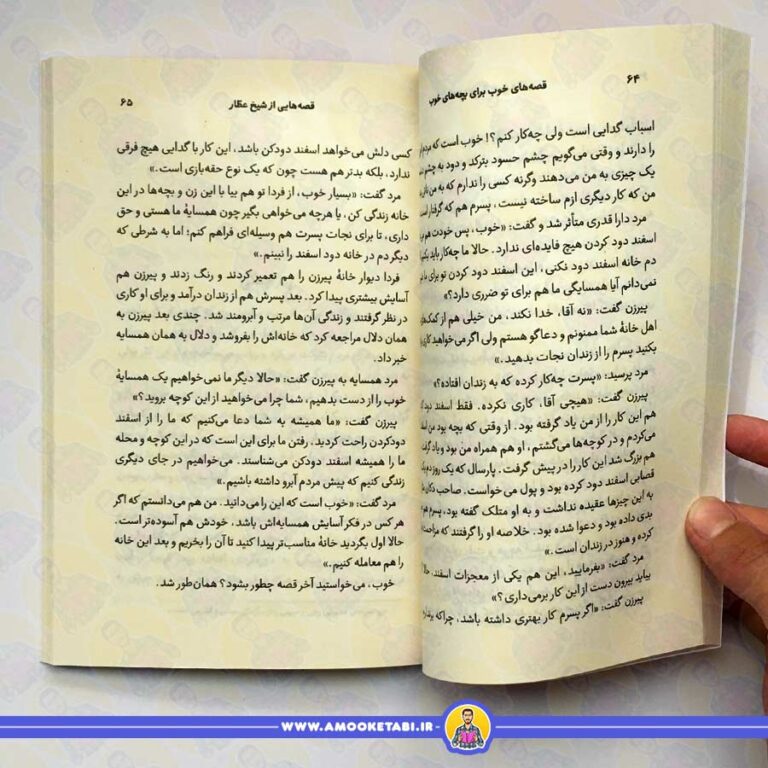 ۶۴
قصه‌های خوب برای بچه‌های خوب
اسباب گدایی است ولی چه‌کار کنم؟! خوب است که مردم این
را دارند و وقتی می‌گویم چشم حسود بترکد و دود به چشم
یک چیزی به من می‌دهند وگرنه کسی را ندارم که به من نان
من که کار دیگری ازم ساخته نیست، پسرم هم که گرفتار است
مرد دارا قدری متأثر شد و گفت: «خوب، پس خودت هم
اسفند دود کردن هیچ فایده‌ای ندارد. حالا ما چه‌کار باید بکنیم
دم خانه اسفند دود نکنی، این اسفند دود کردن تو برای ما
نمی‌دانم آیا همسایگی ما هم برای تو ضرری دارد؟»
پیرزن گفت: «نه آقا، خدا نکند، من خیلی هم از کمک‌های
اهل خانهٔ شما ممنونم و دعاگو هستم ولی اگر می‌خواهید کاری
بکنید پسرم را از زندان نجات بدهید.»
مرد پرسید: «پسرت چه‌کار کرده که به زندان افتاده؟»
پیرزن گفت: «هیچی آقا، کاری نکرده. فقط اسفند دود
هم این کار را از من یاد گرفته بود. از وقتی که بچه بود من
می‌کردم و در کوچه‌ها می‌گشتم، او هم همراه من بود و یاد گرفت
هم بزرگ شد این کار را در پیش گرفت. پارسال که یک روز دم
قصابی اسفند دود کرده بود و پول می‌خواست. صاحب دکان
به این چیزها عقیده نداشت و به او متلک گفته بود، پسرم هم
بدی داده بود و دعوا شده بود. خلاصه او را گرفتند که مزاحمت
کرده و هنوز در زندان است.»
مرد گفت: «بفرمایید، این هم یکی از معجزات اسفند. حالا
بیاید بیرون دست از این کار برمی‌داری؟»
پیرزن گفت: «اگر پسرم کار بهتری داشته باشد، چراکه
قصه‌هایی از شیخ عطار
۶۵
کسی دلش می‌خواهد اسفند دودکن باشد، این کار با گدایی هیچ فرقی
ندارد، بلکه بدتر هم هست چون که یک نوع حقه‌بازی است.»
مرد گفت: «بسیار خوب، از فردا تو هم بیا با این زن و بچه‌ها در این
خانه زندگی کن، یا هرچه می‌خواهی بگیر چون همسایهٔ ما هستی و حق
داری، تا برای نجات پسرت هم وسیله‌ای فراهم کنم؛ اما به شرطی که
دیگر دم در خانه دود اسفند را نبینم.»
فردا دیوار خانهٔ پیرزن را هم تعمیر کردند و رنگ زدند و پیرزن هم
آسایش بیشتری پیدا کرد. بعد پسرش هم از زندان درآمد و برای او کاری
در نظر گرفتند و زندگی آن‌ها مرتب و آبرومند شد. چندی بعد پیرزن به
همان دلال مراجعه کرد که خانه‌اش را بفروشد و دلال به همان همسایه
خبر داد.
مرد همسایه به پیرزن گفت: «حالا دیگر ما نمی‌خواهیم یک همسایهٔ
خوب را از دست بدهیم، شما چرا می‌خواهید از این کوچه بروید؟»
پیرزن گفت: «ما همیشه به شما دعا می‌کنیم که ما را از اسفند
دودکردن راحت کردید. رفتن ما برای این است که در این کوچه و محله
ما را همیشه اسفند دودکن می‌شناسند. می‌خواهیم در جای دیگری
زندگی کنیم که پیش مردم آبرو داشته باشیم.»
مرد گفت: «خوب است که این را می‌دانید. من هم می‌دانستم که اگر
هر کس در فکر آسایش همسایه‌اش باشد، خودش هم آسوده‌تر است.
حالا اول بگردید خانهٔ مناسب‌تر پیدا کنید تا آن را بخریم و بعد این خانه
را هم معامله کنیم.»
خوب، می‌خواستید آخر قصه چطور بشود؟ همان‌طور شد.
WWW.AMOOKETABI.IR